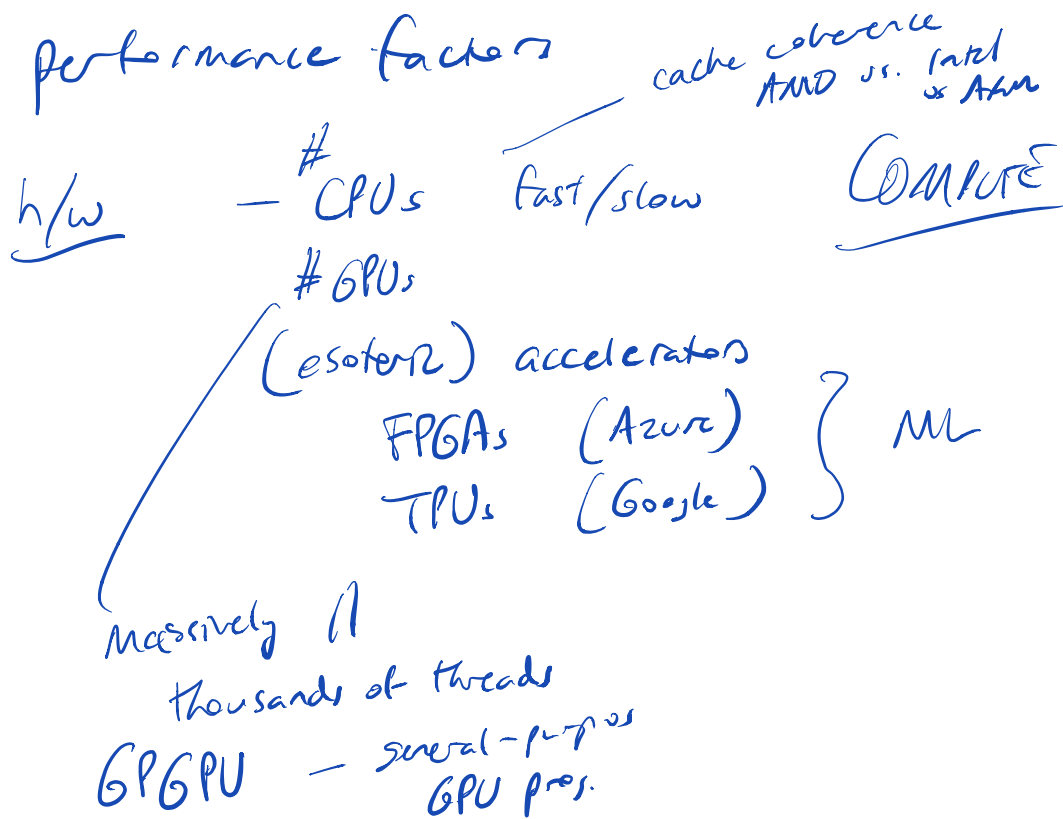 performance factors
cache coherence
AMD vs. Intel
vs ARM
h/w - # CPUs fast/slow COMPUTE
# GPUs
(esoteric) accelerators
FPGAs (Azure) } ML
TPUs (Google)
Massively ||
thousands of threads
GPGPU - general-purpos
GPU prog.